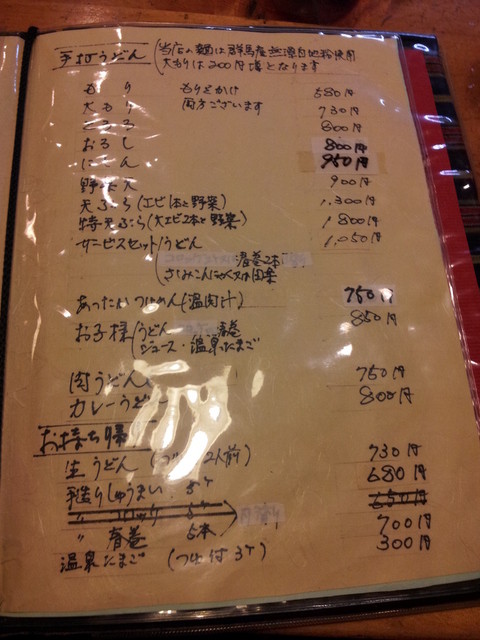 手打うどん (当店の麺は群馬産無漂白地粉使用
大もりは200円増となります
もり もりとかけ 580円
大もり 両方ございます 730円
とろろ 800円
おろし 800円
にしん 950円
野菜天 900円
天ぷら(エビ1本と野菜) 1,300円
特天ぷら(大エビ2本と野菜) 1,800円
サービスセット(うどん 1,050円
春巻2本
(さしみこんにゃく又は団楽
あったかつけめん(温肉汁) 750円
お子様(うどん 春巻 850円
ジュース・温泉たまご
肉うどん 750円
カレーうどん 800円
お持ち帰
生うどん ( 2人前) 730円
手造りしゅうまい 5ケ 680円
〃 5ケ 650円
〃 春巻 5本 700円
温泉たまご (つゆ付 3ケ) 300円